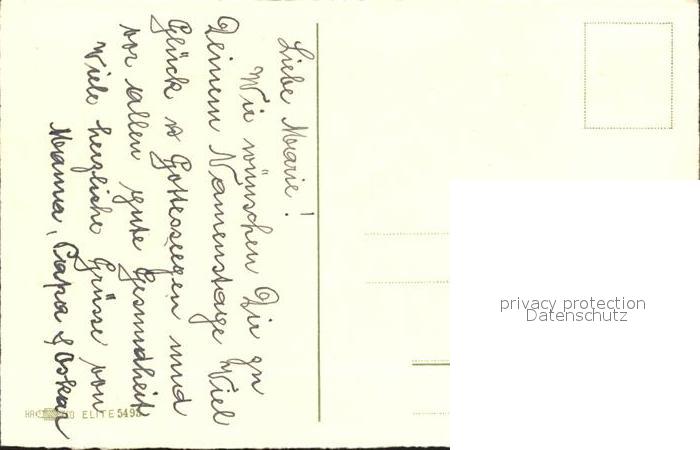 Liebe Marie!
Wir wünschen Dir zu
Deinem Namenstage Viel
Glück & Gottessegen und
vor allen gute Gesundheit
Viele herzliche Grüsse von
Mama, Papa & Oskar
ELITE 549
privacy protection
Datenschutz